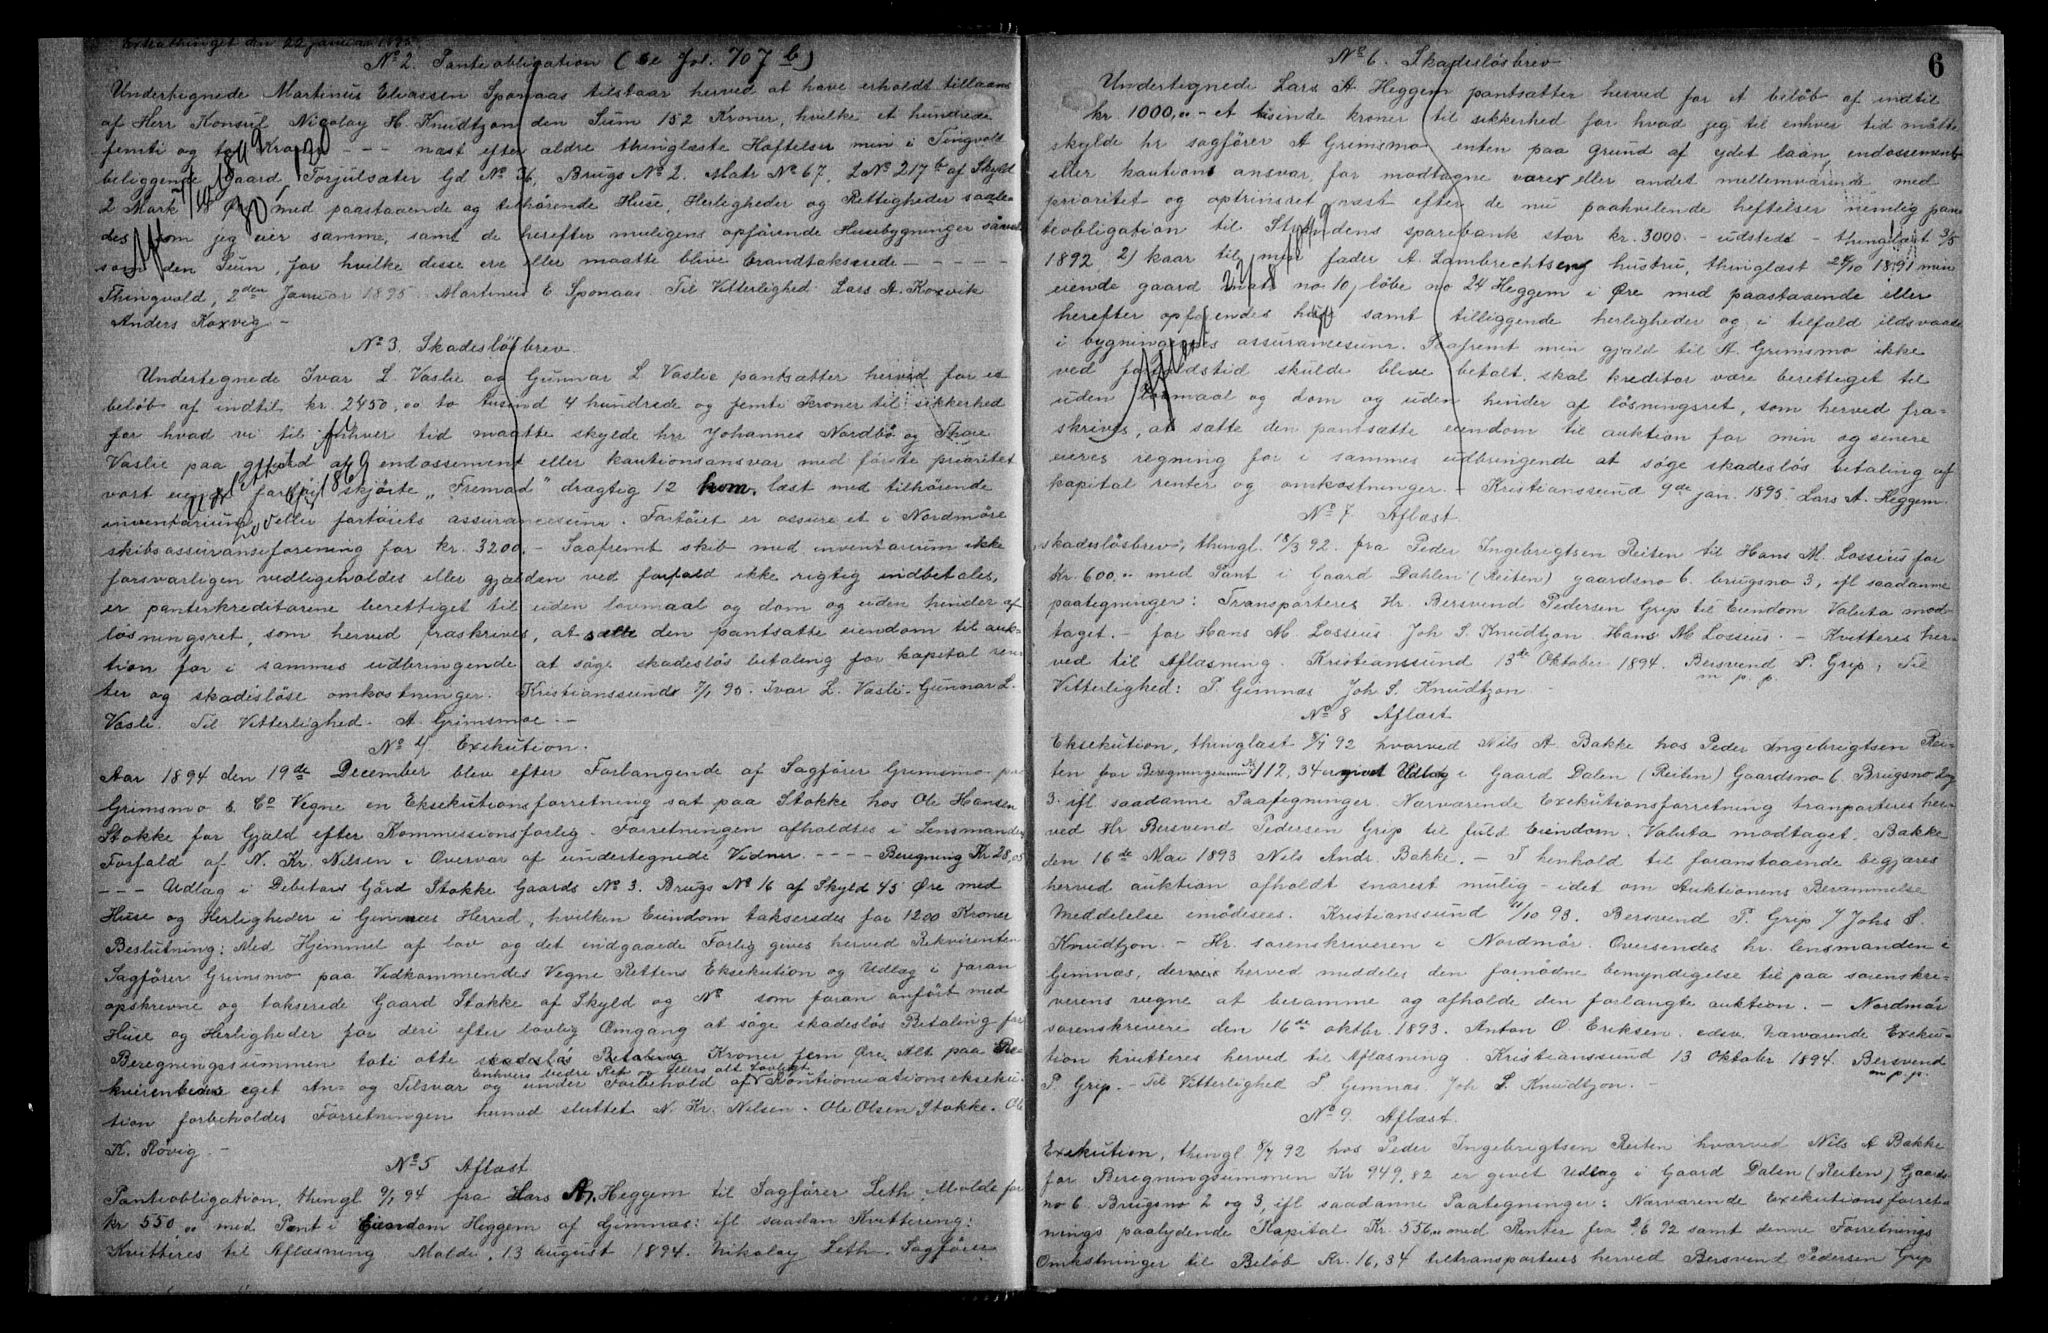 Extrathinget den 22 januar 1895.
No 2. Panteobligation (Se fol. 707 b)
Undertegnede Martinus Eliassen Sponaas tilstaar herved at have erholdt tillaans
af Herr Konsul Nicolay H. Knudtzon den Sum 152 Kroner, hvilke et hundrede
femti og to Kroner - - - næst efter ældre thinglæste Hæftelser min i Tingvold
beliggende Gaard Torjulsæter Gd No 36, Brugs No 2. Matr No 67, L No 217 b af Skyld
2 Mark Øre med paastaaende og tilhørende Huse, Herligheder og Rettigheder saale-
des som jeg eier samme, samt de herefter muligens opførende Husebygninger såvel
som den Sum, for hvilke disse ere eller maatte blive brandtakserede - - - -
Thingvold, 2den Januar 1895. Martinus E. Sponaas. Til Vitterlighed Lars A. Koxvik
Anders Koxvig -
No 3. Skadesløsbrev.
Undertegnede Ivar L. Vaslie og Gunnar L Vaslie pantsætter herved for et
beløb af indtil kr. 2450,00 to tusend 4 hundrede og femti Kroner til sikkerhed
for hvad vi til enhver tid maatte skylde hrr Johannes Nordbø og Thore
Vaslie paa grund af endossement eller kautionsansvar med første prioritet
vort eiende fartøi skjøite "Fremad" drægtig 12 kom. læst med tilhørende
inventarium eller fartøiets assurancesum. Fartøiet er assureret i Nordmøre
skibsassuranseforening for kr. 3200. - Saafremt skib med inventarium ikke
forsvarligen vedligeholdes eller gjælden ved forfald ikke rigtig indbetales,
er panterkreditorene berettiget til uden lovmaal og dom og uden hinder af
løsningsret, som herved fraskrives, at sætte den pantsatte eiendom til auk-
tion for i sammes udbringende at søge skadesløs betaling for kapital ren-
ter og skadesløse omkostninger. Kristianssund 7/1 95. Ivar L. Vasli. Gunnar L.
Vasli. Til Vitterlighed. A. Grimsmoe. -
No 4 Exekution.
Aar 1894 den 19de December blev efter Forlangende af Sagfører Grimsmo paa
Grimsmo & Co Vegne en Eksekutionsforretning sat paa Stokke hos Ole Hansen
Stokke for Gjæld efter Kommissionsforlig. Forretningen afholdtes i Lensmandens
Forfald af N. Kr. Nilsen i Overvær af undertegnede Vidner. - - - Beregning Kr 28,05
- - - Udlæg i Debitors Gård Stokke Gaards No 3. Brugs No 16 af Skyld 45 Øre med
Huse og Herligheder i Gimnæs Herred, hvilken Eiendom takseredes for 1200 Kroner
Beslutning: Med Hjemmel af lov og det indgaaede Forlig gives herved Rekvirenten
Sagfører Grimsmo paa Vedkommendes Vegne Rettens Eksekution og Udlæg i foran
opskrevne og takserede Gaard Stokke af Skyld og No som foran anført med
Huse og Herligheder for deri efter lovlig Omgang at søge skadesløs Betaling for
Beregningssummen toti otte skadesløs Betaling Kroner fem Øre. Alt paa Re-
enhvers bedre Ret og ellers alt Lovligt.
kvirentens eget An- og Tilsvar og under Forbehold af Kontinuationsekseku-
tion forbeholdes Forretningen hermed sluttet N. Kr. Nilsen. Ole Olsen Stokke. Ole
K. Røvig. -
No 5 Aflæst
Panteobligation, thingl 9/1 94 fra Lars A. Heggem til Sagfører Leth, Molde for
kr 550,00 med Pant i Eiendom Heggem af Gimnæs: ifl saadan Kvittering:
Kvitteres til Aflæsning Molde, 13 august 1894. Nikolay Leth. Sagfører
6
No 6. Skadesløsbrev
Undertegnede Lars A Heggem pantsætter herved for et beløb af indtil
kr 1000,00 - et tusinde kroner til sikkerhed for hvad jeg til enhver tid måtte
skylde hr sagfører A Grimsmo enten paa grund af ydet laan, endossement
eller kautions ansvar, for modtagne varer eller andet mellemværende med
prioritet og optrinsret næst efter de nu paahvilende heftelser nemlig pan-
teobligation til Strandens sparebank stor kr. 3000. - udstedt - thinglæst 3/5
1892 2) kaar til min fader A. Lambrechtsens hustru, thinglæst 24/10 1891 min
eiende gaard mat no 10, løbe no 24 Heggem i Øre med paastaaende eller
herefter opførendes huse samt tilliggende herligheder og i tilfæld ildsvaade
i bygningernes assurancesum. Saafremt min gjæld til A. Grimsmo ikke
ved forfaldstid skulde blive betalt, skal kreditor være berettiget til
uden lovmaal og dom og uden hinder af løsningsret, som herved fra-
skrives, at sætte den pantsatte eiendom til auktion for min og senere
eieres regning for i sammes udbringende at søge skadesløs betaling af
kapital renter og omkostninger. - Kristianssund 9de jan. 1895 Lars A. Heggem.
No 7 Aflæst
skadesløsbrev, thingl. 18/3 92. fra Peder Ingebrigtsen Reiten til Hans M. Lossius for
Kr 600,00 med Pant i Gaard Dahlen (Reiten) gaardsno 6. brugsno 3, ifl saadanne
paategninger: Transporteres Hr. Bersvend Pedersen Grip til Eiendom Valuta mod-
taget. - for Hans M. Lossius. Joh S. Knudtzon. Hans M Lossius. - Kvitteres her-
ved til Aflæsning. Kristianssund 13de Oktober 1894. Bersvend P. Grip, Til
m. p. p.
Vitterlighed: P. Gimnæs Joh S. Knudtzon -
No 8 Aflæst
Eksekution, thinglæst 8/7 92 hvorved Nils A Bakke hos Peder Ingebrigtsen Rei-
ten for Beregningssum Kr 112,34 er givet Udlæg i Gaard Dalen (Reiten) Gaardsno 6 Brugsno 2 og
3. ifl saadanne Paategninger. Nærværende Exekutionsforretning tranporteres her-
ved Hr Bersvend Pedersen Grip til fuld Eiendom. Valuta modtaget. Bakke
den 16de Mai 1893 Nils Andr. Bakke. - I henhold til foranstaaende begjæres
herved auktion afholdt snarest mulig - idet om Auktionens Berammelse
Meddelelse imødesees. Kristianssund 11/10 93. Bersvend P. Grip / Johs S.
Knudtzon. - Hr. sorenskriveren i Nordmør. Oversendes hr. lensmanden i
Gimnæs, der herved meddeles den fornødne bemyndigelse til paa sorenskri-
verens vegne at beramme og afholde den forlangte auktion. - Nordmør
sorenskriveri den 16de oktbr. 1893. Anton O. Eriksen. edsv. Nærværende Exeku-
tion kvitteres herved til Aflæsning Kristianssund 13 Oktober 1894. Bersvend
m. p. p.
P. Grip. - Til Vitterlighed P Gimnæs. Joh S. Knudtzon. -
No 9. Aflæst.
Exekution, thingl 8/7 92 hos Peder Ingebrigtsen Reiten hvorved Nils A Bakke
for Beregningsummen Kr 949,82 er givet Udlæg i Gaard Dalen (Reiten) Gaards-
no 6 Brugsno 2 og 3, ifl saadanne Paategninger: Nærværende Exekutionsforret-
nings paalydende Kapital Kr. 556,00 med Renter fra 2/6 92 samt denne Forretnings
Omkstninger til Beløb Kr. 16,34 tiltransporteres herved Bersvend Pedersen Grip